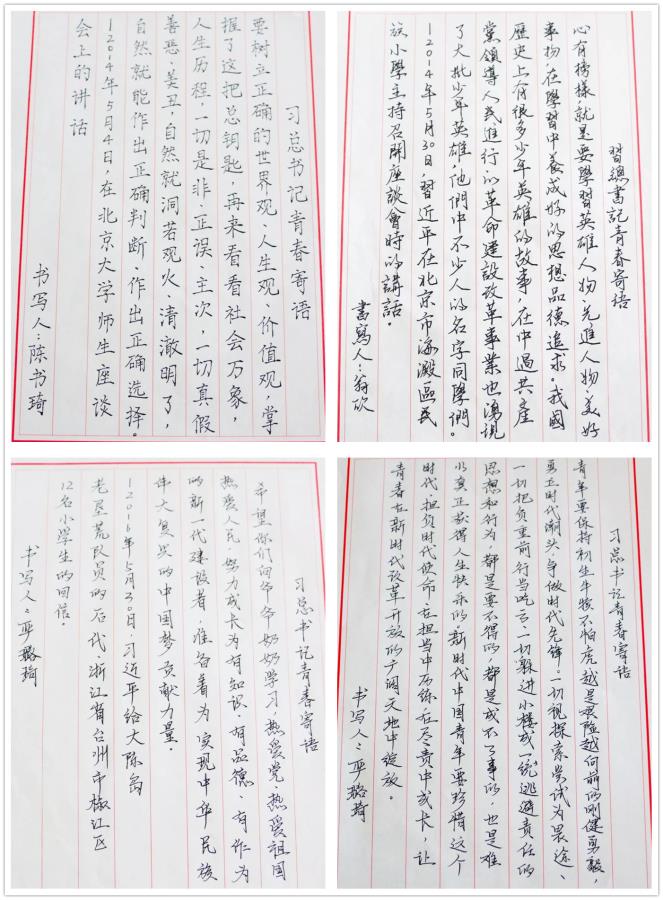 习总书记青春寄语
要树立正确的世界观、人生观、价值观,掌
握了这把总钥匙,再来看看社会万象,
人生历程,一切是非、正误、主次,一切真假
善恶、美丑,自然就洞若观火、清澈明了,
自然就能作出正确判断、作出正确选择。
—2014年5月4日,在北京大学师生座谈
会上的讲话
书写人:陈书琦
習總書記青春寄语
心有榜樣,就是要學習英雄人物、先進人物、美好
事物,在學習中養成好的思想品德追求。我國
歷史上有很多少年英雄的故事,在中過共產
黨領導人民進行的革命建設改革事業也湧現
了大批少年英雄,他們中不少人的名字同學們。
—2014年5月30日,習近平在北京市海澱區民
族小學主持召開座談會時的講話。
書寫人:翁
习总书记青春寄语
希望你们向爷爷奶奶学习,热爱党、热爱祖国
热爱人民,努力成长为有知识、有品德、有作为
的新一代建设者,准备着为实现中华民族
伟大复兴的中国梦贡献力量。
—2016年5月30日,习近平给大陈岛
老垦荒队员的后代、浙江省台州市椒江区
12名小学生的回信。
书写人:严璐琦
习总书记青春寄语
青年要保持初生牛犊不怕虎越是艰险越向前的刚健勇毅,
勇立时代潮头,争做时代先锋!一切视探索尝试为畏途、
一切把负重前行当吃亏、一切躲进小楼成一统逃避责任的
思想和行为,都是要不得的,都是成不了事的,也是难
以真正获得人生快乐的新时代中国青年要珍惜这个
时代、担负时代使命,在担当中历练,在尽责中成长,让
青春在新时代改革开放的广阔天地中绽放。
书写人:严璐琦